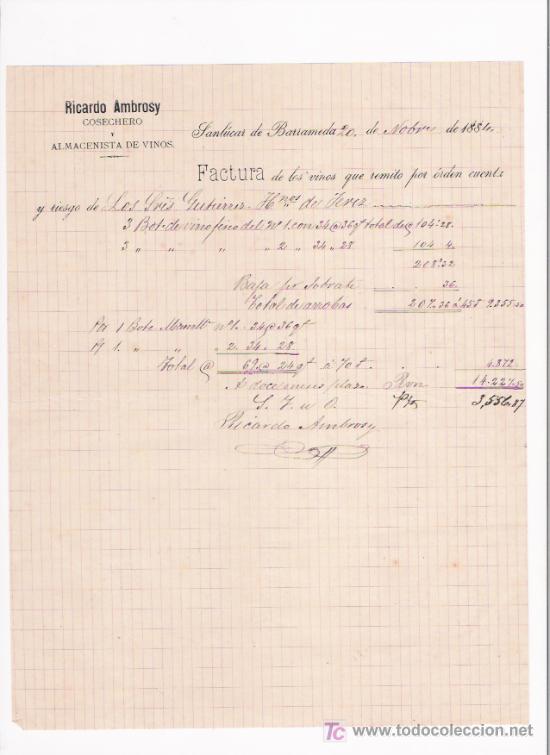 Ricardo Ambrosy
COSECHERO
Y
ALMACENISTA DE VINOS.
Sanlúcar de Barrameda 20 de Nobre de 1884.
Factura de los vinos que remito por órden cuenta
y riesgo de Los Sres Gutierrez Hnos de Jerez
3 Bot. de vino fino del Nº 1. con 34 @ 36 qt total de @ 104 " 28
3 " " " " 2 " 34 " 28 104 4
208 " 32
Baja por 36
Total de arrobas 207 " 36 á 45 9355 " 50
Por 1 Bota nº 1. 34 @ 36 qt
Pr 1. " " " 2. 34. 28
Total @ 69 @ 24 qt á 70 4.872
A doce meses plazo Rvn 14.227 " 50
S. E. u O. Pts 3,556 " 87
Ricardo Ambrosy
TC www.todocoleccion.net